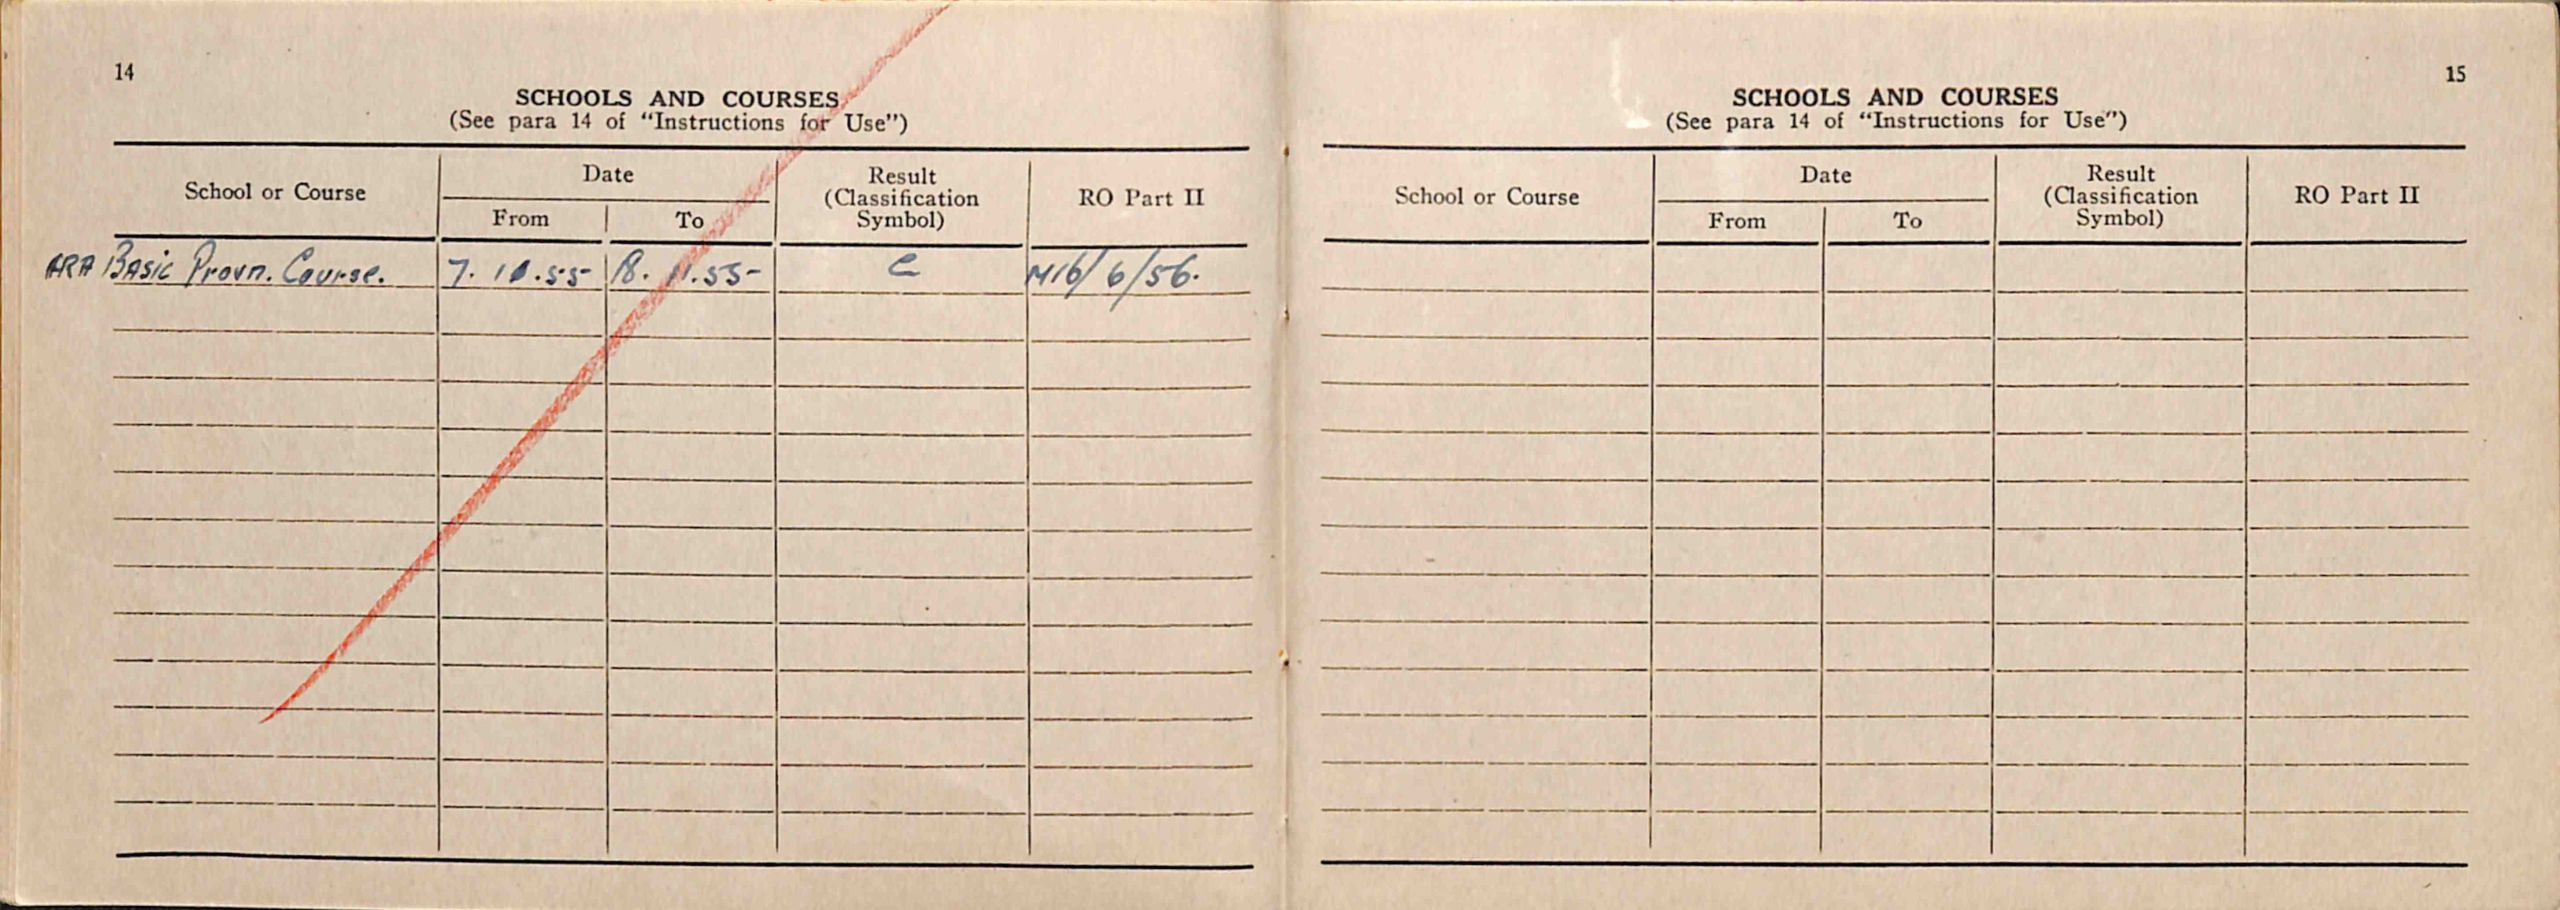 14
SCHOOLS AND COURSES
(See para 14 of “Instructions for Use”)
School or Course
Date
From
To
Result
(Classification
Symbol)
RO Part II
ARA Basic Provn. Course. 7. 10.55 18. 11.55 C M16/6/56.
15
SCHOOLS AND COURSES
(See para 14 of “Instructions for Use”)
School or Course
Date
From
To
Result
(Classification
Symbol)
RO Part II